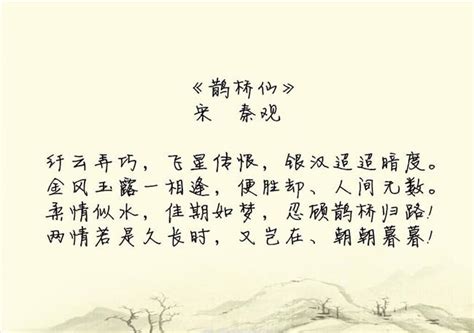 《鹊桥仙》
宋 秦观
纤云弄巧，飞星传恨，银汉迢迢暗度。
金风玉露一相逢，便胜却、人间无数。
柔情似水，佳期如梦，忍顾鹊桥归路！
两情若是久长时，又岂在、朝朝暮暮！